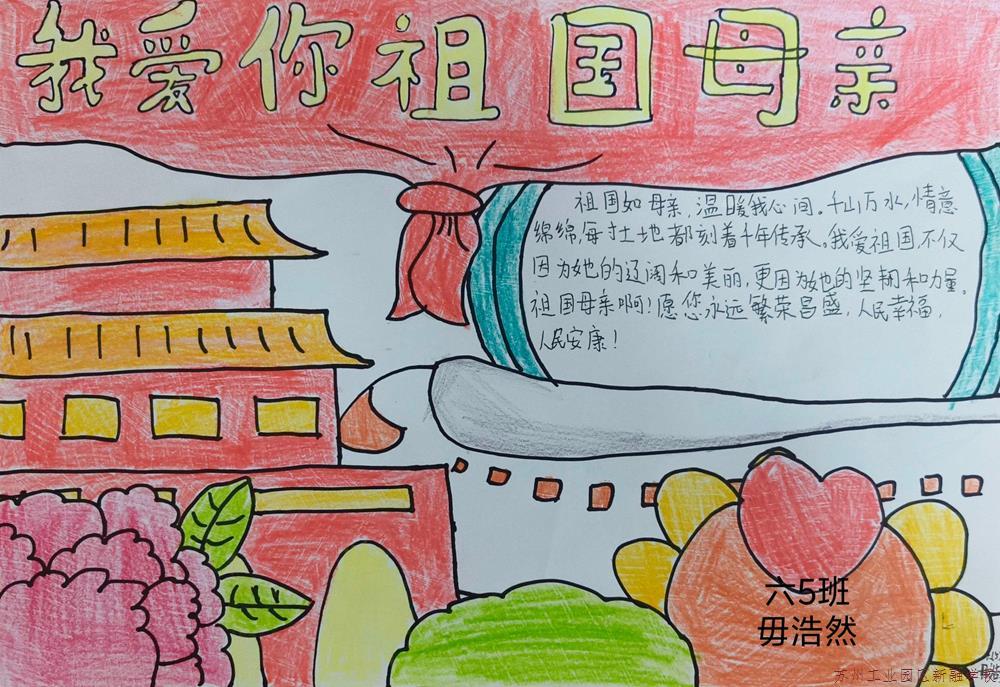 我爱你祖国母亲
祖国如母亲,温暖我心间。千山万水,情意
绵绵,每寸土地都刻着千年传承。我爱祖国,不仅
因为她的辽阔和美丽,更因为她的坚韧和力量。
祖国母亲啊!愿您永远繁荣昌盛,人民幸福,
人民安康!
六5班
毋浩然
苏州工业园区新融学校